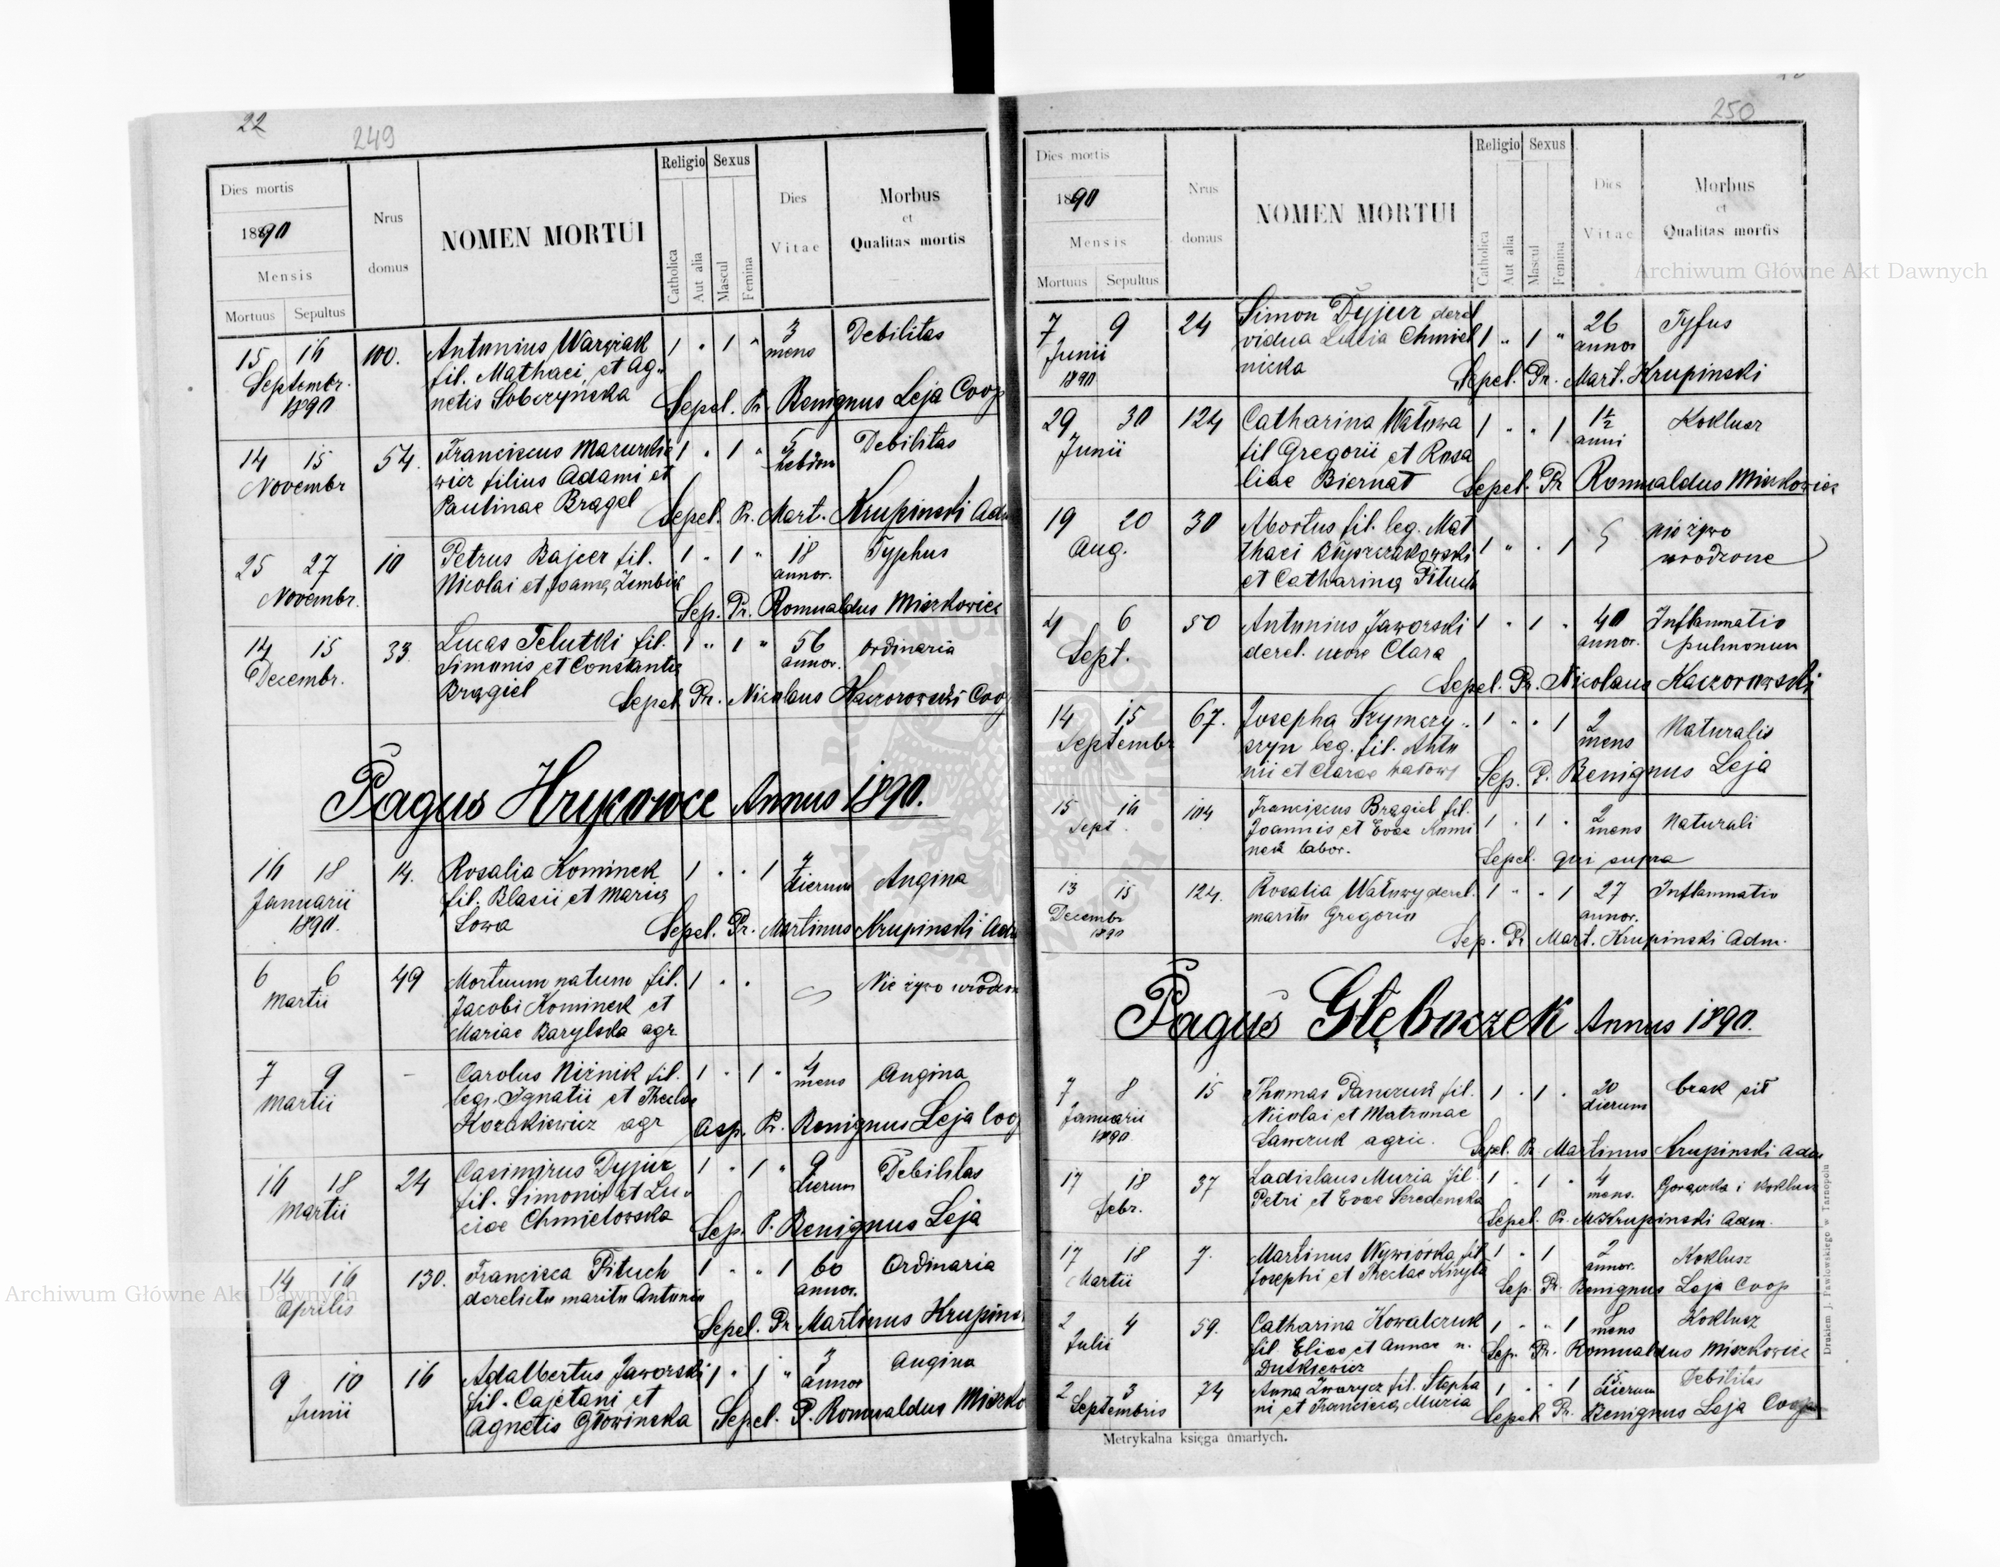 22
249
Dies mortis
1890
Mensis
Mortuus Sepultus
Nrus
domus
NOMEN MORTUI
Religio
Catholica
Aut alia
Sexus
Mascul
Femina
Dies
Vitae
Morbus
et
Qualitas mortis
15 16 100. Antonius Warziak 1 " 1 " 3 Debilitas
Septembr. fil. Mathaei, et Ag- mens
1890 netis Sobczynska Sepel. Pr. Benignus Leja Coop
14 15 54. Franciscus 1 " 1 " 5 Debilitas
Novembr wicz filius Adami et hebdom
Paulinae Bragel Sepel. Pr. Mart. Krupinski Adm
25 27 10 Petrus Bajcer fil. 1 " 1 " 18 Typhus
Novembr. Nicolai et Joanna Zembik annor.
Sep. Pr. Romualdus Mieszkowicz
14 15 33. Lucas Telutki fil. 1 " 1 " 56 ordinaria
Decembr. Simonis et Constantia annor.
Brągiel Sepel. Pr. Nicolaus Kaczorowski Coop
Pagus Hrycowce Annus 1890.
16 18 14. Rosalia Kominek 1 " " 1 7 Angina
Januarii fil. Blasii et Maria dierum
1890. Sowa Sepel. Pr. Martinus Krupinski Adm
6 6 49 Mortuum natum fil. 1 " " Nie żywo urodzon
Martii Jacobi Kominek et
Mariae Barylska agr
7 9 - Carolus Niżnik fil. 1 " 1 " 4 Angina
Martii leg. Ignatii et Theclae mens
Kozakiewicz agr Asp. Pr. Benignus Leja Coop
16 18 24 Casimirus Dyjur 1 " 1 " 9 Debilitas
Martii fil. Simonis et Lu- dierum
ciae Chmielowska Sep. P. Benignus Leja
14 16 130. Francisca Pituch 1 " " 1 60 Ordinaria
Aprilis derelicta marito Antonio annor.
Sepel. Pr. Martinus Krupins
9 10 16 Adalbertus Jaworski 1 " 1 " 3 Angina
Junii fil. Cajetani et annor
Agnetis Głowinska Sepel. P. Romualdus Mieszko
250
Dies mortis
1890
Mensis
Mortuus Sepultus
Nrus
domus
NOMEN MORTUI
Religio
Catholica
Aut alia
Sexus
Mascul
Femina
Dies
Vitae
Morbus
et
Qualitas mortis
7 9 24 Simon Dyjur derel 1 " 1 " 26 Tyfus
Junii vidua Lucia Chmiel annor
1890 nicka Sepel. Pr. Mart. Krupinski
29 30 124 Catharina Watowa 1 " " 1 1½ Koklusz
Junii fil Gregorii et Rosa anni
liae Biernat Sepel. Pr Romualdus Mieszkowicz
19 20 30 Abortus fil. leg. Mat 1 " " 1 nie żywo
Aug. thaei urodzone
et Catharina Pituch
4 6 50 Antonius Jaworski 1 " 1 " 40 Inflammatio
Sept. derel. uxore Clara annor. pulmonum
Sepel. Pr. Nicolaus Kaczorowski
14 15 67. Josepha Szymczy 1 " " 1 2 Naturalis
Septembr szyn leg. fil. Anto mens
nii et Clarae Sep. P. Benignus Leja
15 16 104 Franciscus Brągiel fil. 1 " 1 " 2 Naturali
Sept. Joannis et Evae Komi mens
nek labor. Sepel. qui supra
13 15 124. Rosalia Watowy derel. 1 " " 1 27 Inflammatio
Decembr marito Gregorio annor.
1890 Sep. Pr Mart. Krupinski Adm.
Pagus Głęboczek Annus 1890.
7 8 15 Thomas Panczuk fil. 1 " 1 " 20 brak sił
Januarii Nicolai et Matronae dierum
1890. Sawczuk agric. Sepel. Pr Martinus Krupinski Adm
17 18 37 Ladislaus Muria fil 1 " 1 " 4 Gorączka i koklusz
Febr. Petri et Evae Seredenska mens.
Sepel. Pr. M. Krupinski Adm.
17 18 7. Martinus Wywiórka fil 1 " 1 2 Koklusz
Martii Josephi et Theclae annor.
Sep. Pr. Benignus Leja Coop
2 4 59. Catharina Kowalczuk 1 " " 1 8 Koklusz
Julii fil Elias et Annae n. mens
Dutkiewicz Sep. Pr. Romualdus Mieszkowicz
2 3 74 Anna Zwarycz fil. Stepha 1 " " 1 15 Debilitas
Septembris ni et Francisca Muria dierum
Sepel. Pr. Benignus Leja Coop
Metrykalna księga umarłych.
Drukiem J. Pawłowskiego w Tarnopolu
Archiwum Główne Akt Dawnych
Archiwum Główne Akt Dawnych